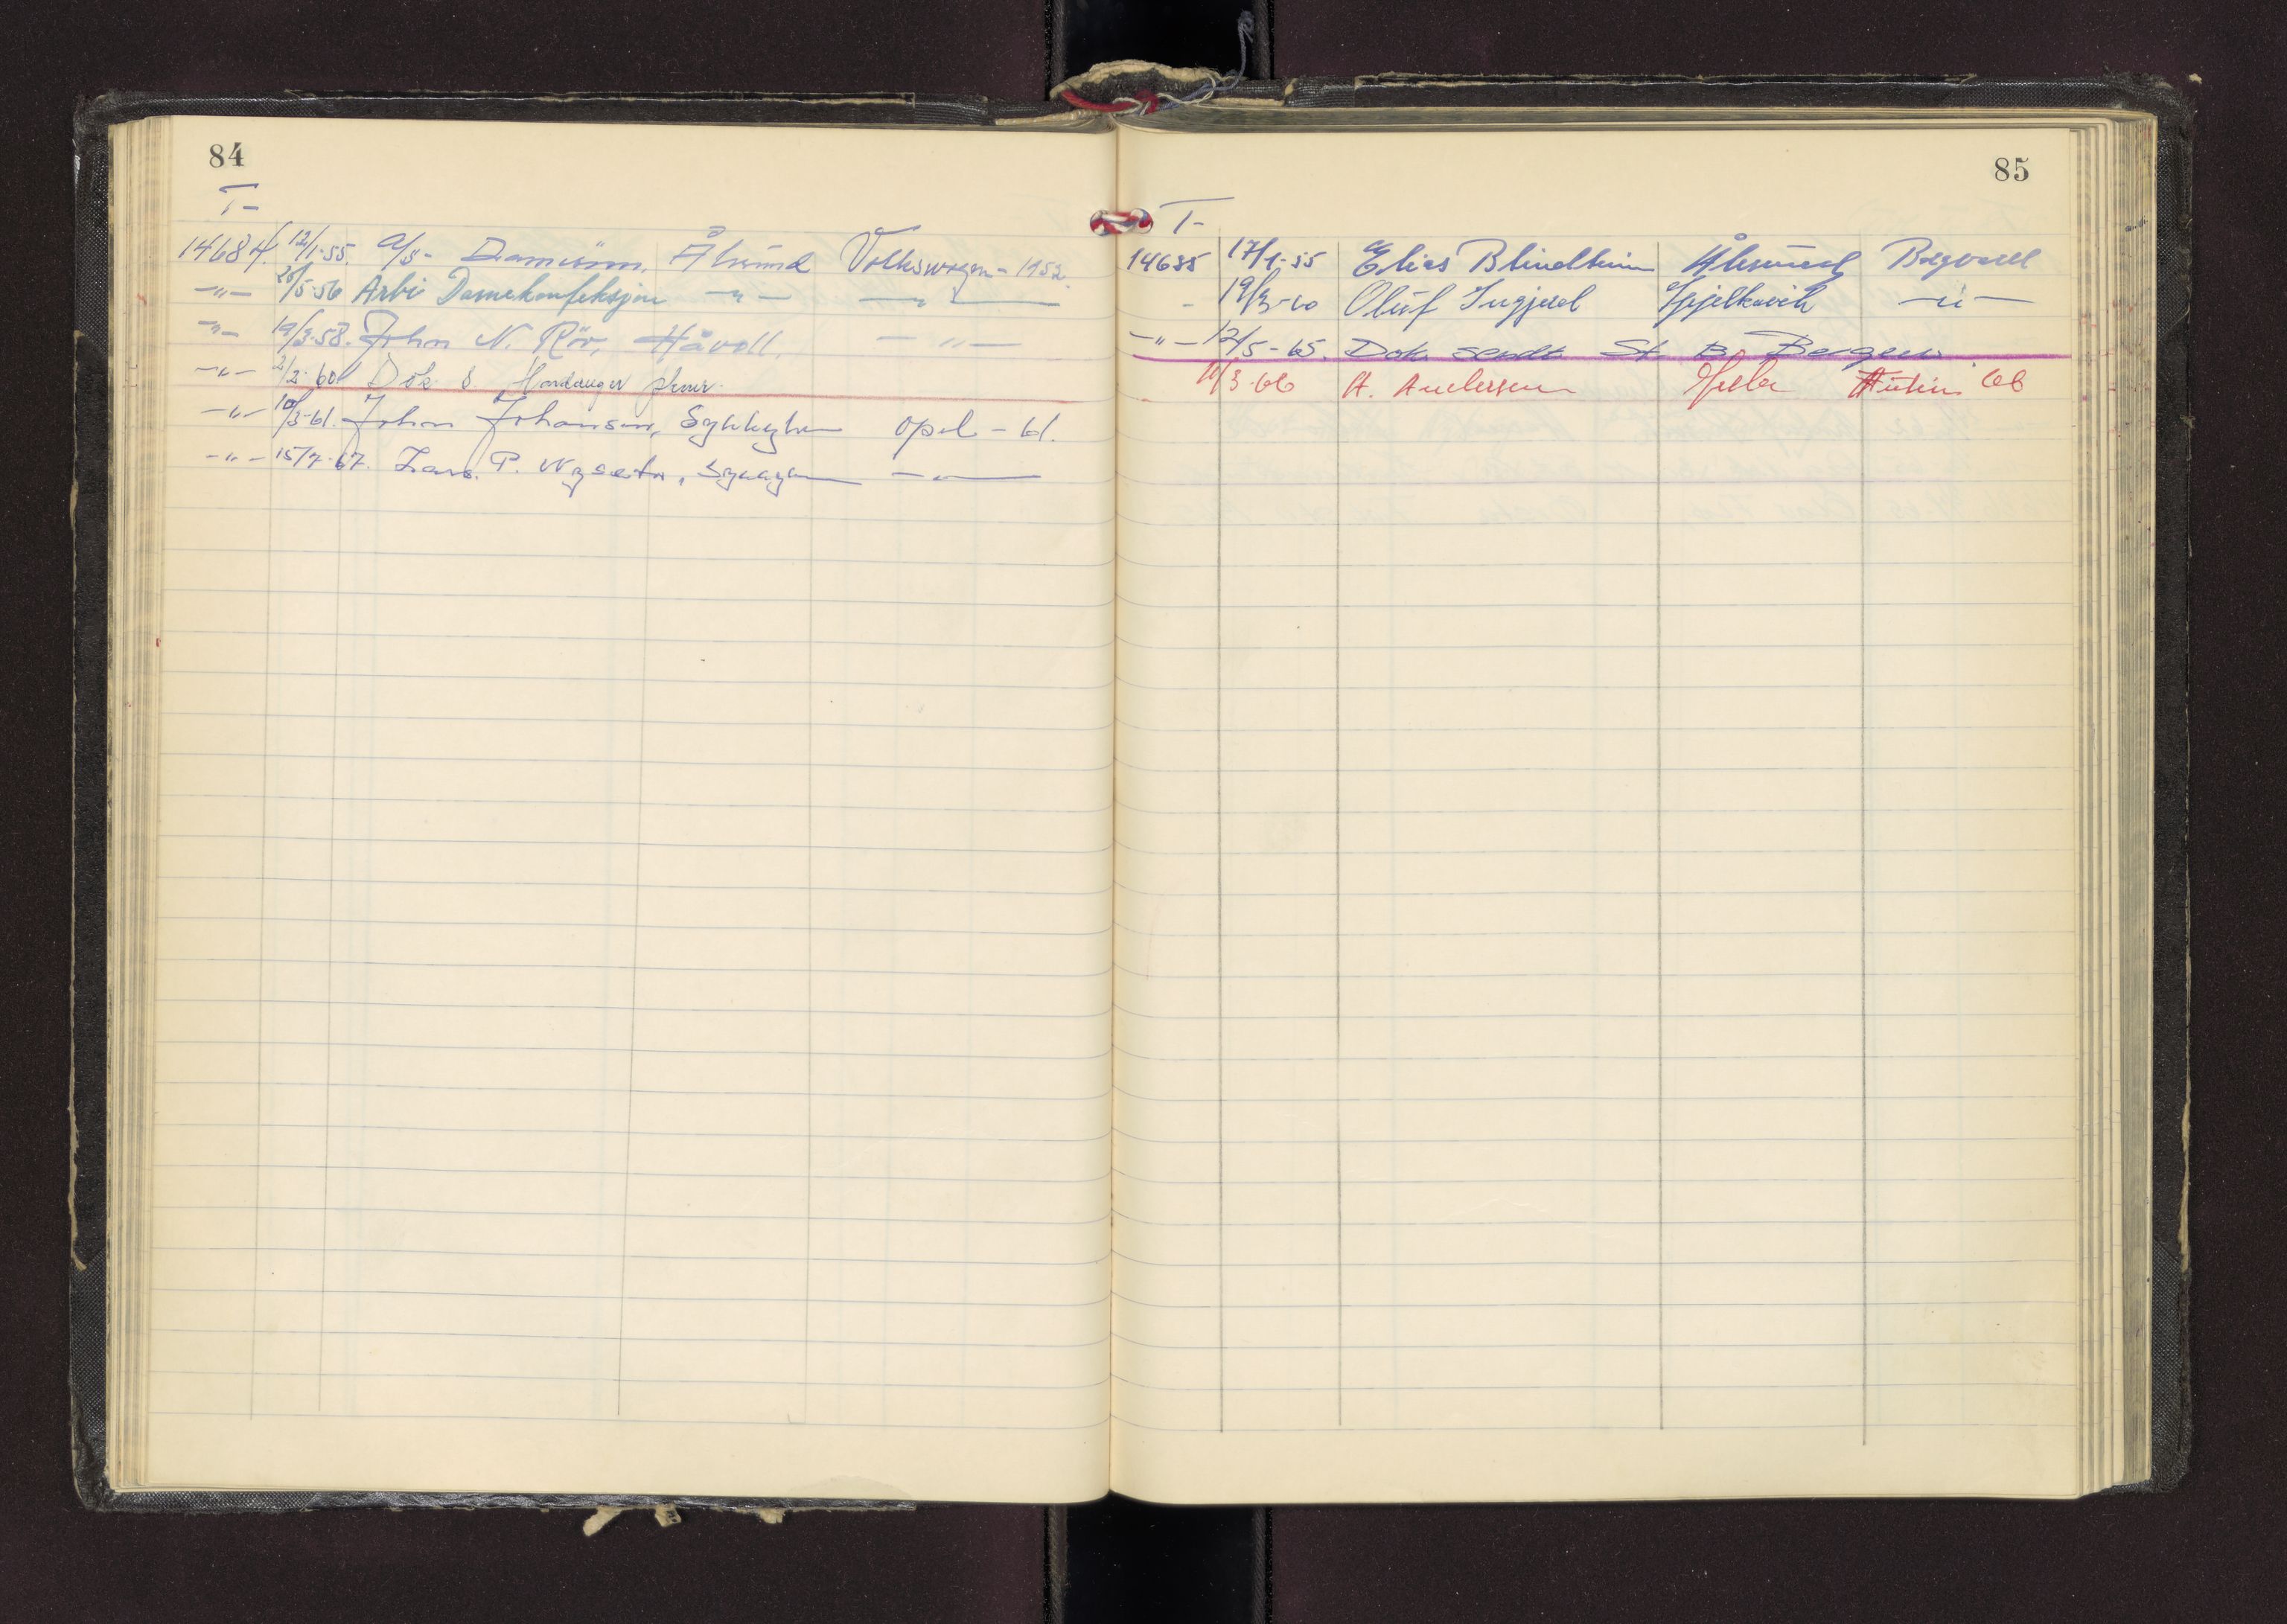 84
T-
14684. 12/1-55. A/S- Damesøm. Ålesund Volkswagen - 1952.
-"- 28/5-56 Arbi Damekonfeksjon -"- -"-
-"- 19/3-58. John N. Rör, Håvoll. -"-
-"- 2/3-60 Dok s. Hordanger
-"- 10/3-61. Johan Johansen, Sykkylven Opel - 61.
-"- 15/7-67. Lars. P. Nysetvr, -"-
85
T-
14685 17/1-55 Elias Blindheim Ålesund Borgward
- 19/3-60 Oluf Ingjerd Spjelkavik -"-
-"- 12/5-65. Dok. sendt St B Bergen.
11/3-66 A. Andersen Austin 66